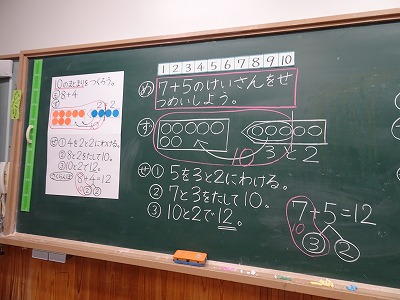 10のまとまりをつくろう。
8+4
2 2
① 4を2と2にわける。
② 8と2をたして10。
③ 10と2で12。
さくらんぼ 8+4=12
② ②
1 2 3 4 5 6 7 8 9 10
め 7+5のけいさんをせ
つめいしよう。
ず
10 3と2
せ ① 5を3と2にわける。
② 7と3をたして10。
③ 10と2で12。
7+5=12
10 ③ ②